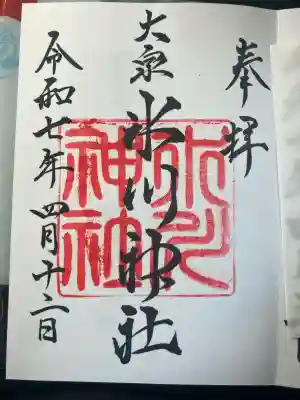 奉拝
大泉
氷川神社
令和七年四月十二日
氷川神社